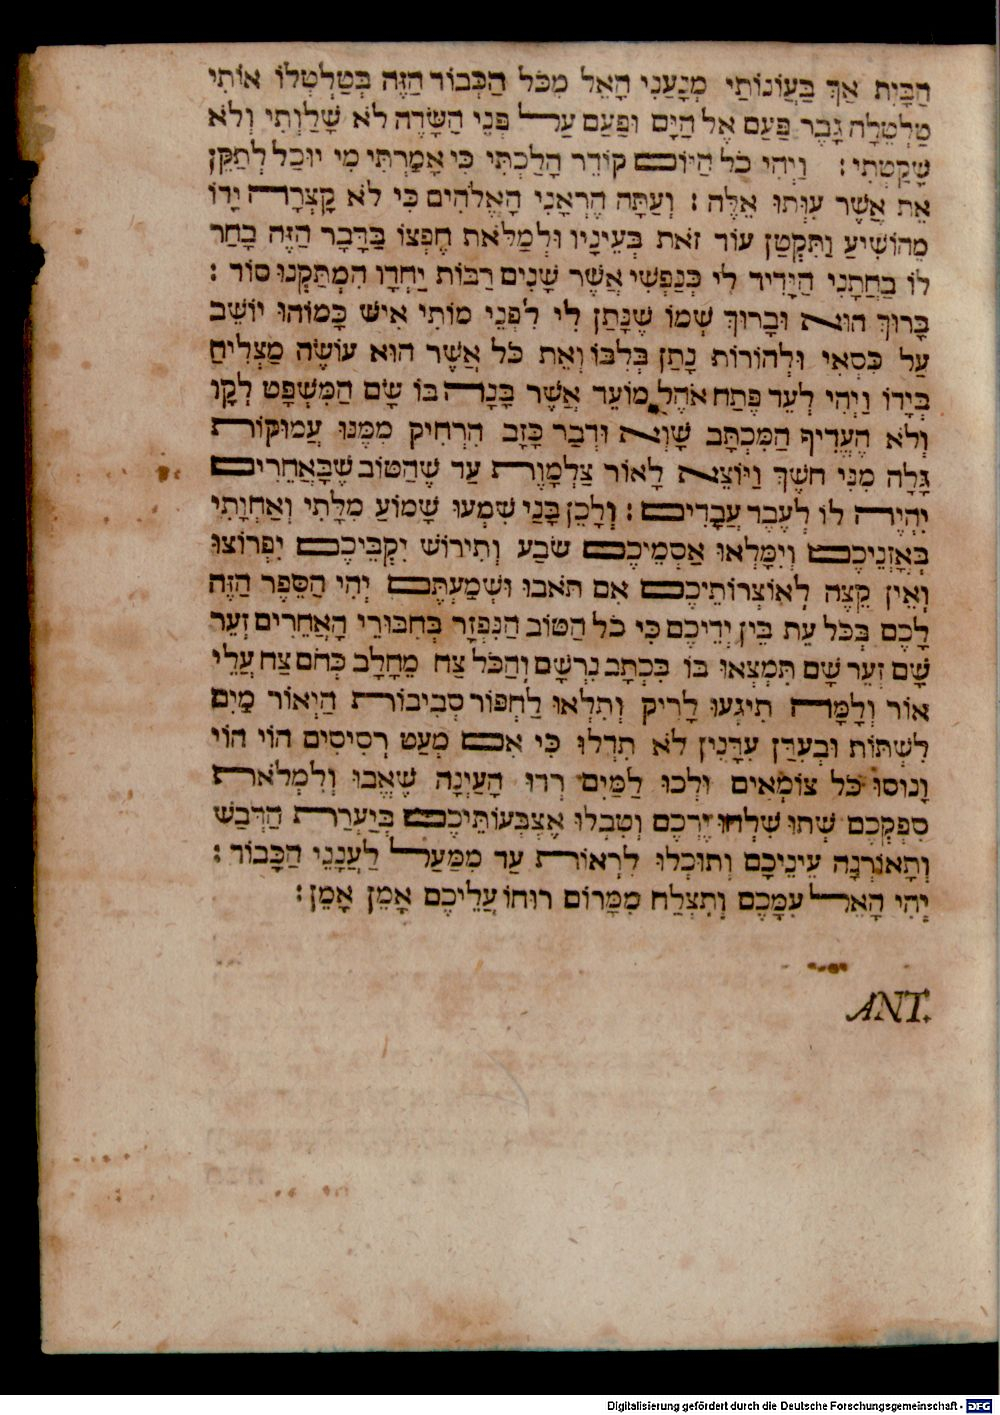 הַבַּיִת אַךְ בַּעֲוֹנוֹתַי מְנָעַנִי הָאֵל מִכֹּל הַכְּבוֹד הַזֶּה בְּטַלְטְלוֹ אוֹתִי
טַלְטֵלָה גָבֶר פַּעַם אֶל הַיָּם וּפַעַם עַל פְּנֵי הַשָּׂדֶה לֹא שָׁלַוְתִי וְלֹא
שָׁקַטְתִי : וַיְהִי כֹל הַיּוֹם קוֹדֵר הָלַכְתִּי כִּי אָמַרְתִּי מִי יוּכַל לְתַקֵּן
אֵת אֲשֶׁר עִוְּתוּ אֵלֶּה : וְעַתָּה הֶרְאָנִי הָאֱלֹהִים כִּי לֹא קָצְרָה יָדוֹ
מֵהוֹשִׁיעַ וַתִּקְטַן עוֹד זֹאת בְּעֵינָיו וּלְמַלֹּאת חֶפְצוֹ בַּדָּבָר הַזֶּה בָחַר
לוֹ בַחֲתָנִי הַיָּדִיד לִי כְּנַפְשִׁי אֲשֶׁר שָׁנִים רַבּוֹת יַחְדָו הִמְתַּקְנוּ סוֹד :
בָּרוּךְ הוּא וּבָרוּךְ שְׁמוֹ שֶׁנָּתַן לִי לִפְנֵי מוֹתִי אִישׁ כָּמוֹהוּ יוֹשֵׁב
עַל כִּסְאִי וּלְהוֹרוֹת נָתַן בְּלִבּוֹ וְאֵת כֹּל אֲשֶׁר הוּא עוֹשֶׂה מַצְלִיחַ
בְּיָדוֹ וַיְהִי לְעֵד פֶּתַח אֹהֶל מוֹעֵד אֲשֶׁר בָּנָה בּוֹ שָׂם הַמִּשְׁפָּט לְקָו
וְלֹא הֶעֱדִיף הַמִּכְתָּב שָׁוְא וּדְבַר כָּזָב הִרְחִיק מִמֶּנּוּ עֲמוּקוֹת
גָּלָה מִנִּי חֹשֶׁךְ וַיּוֹצֵא לָאוֹר צַלְמָוֶת עַד שֶׁהַטּוֹב שֶׁבָּאֲחֵרִים
יִהְיֶה לוֹ לְעֶבֶד עֲבָדִים : וְלָכֵן בָּנַי שִׁמְעוּ שָׁמוֹעַ מִלָּתִי וְאַחְוָתִי
בְּאָזְנֵיכֶם וְיִמָּלְאוּ אַסְמֵיכֶם שֹבַע וְתִירוֹשׁ יִקְבֵיכֶם יִפְרוֹצוּ
וְאֵין קֵצֶה לְאוֹצְרוֹתֵיכֶם אִם תֹּאבוּ וּשְׁמַעְתֶּם יְהִי הַסֵּפֶר הַזֶּה
לָכֶם בְּכֹל עֵת בֵּין יְדֵיכֶם כִּי כֹל הַטּוֹב הַנִּפְזָר בְּחִבּוּרֵי הָאֲחֵרִים זְעֵר
שָׁם זְעֵר שָׁם תִּמְצְאוּ בוֹ בִּכְתָב נִרְשָׁם וְהַכֹּל צַח מֵחָלָב כְּחֹם צַח עֲלֵי
אוֹר וְלָמָּה תִיגְעוּ לָרִיק וְתִלְאוּ לַחְפּוֹר סְבִיבוֹת הַיְאוֹר מַיִם
לִשְׁתּוֹת וּבְעִדַּן עִדָּנִין לֹא תִדְלוּ כִּי אִם מְעַט רְסִיסִים הוֹי הוֹי
וָנוּסוּ כֹּל צוֹמְאִים וּלְכוּ לַמַּיִם רְדוּ הָעַיְנָה שֶׁאֱבוּ וְלִמְלֹאת
סִפְקְכֶם שְׁתוּ שִׁלְחוּ יֶדְכֶם וְטִבְלוּ אֶצְבְּעוֹתֵיכֶם בְּיַעְרַת הַדְּבַשׁ
וְתָאוֹרְנָה עֵינֵיכָם וְתוּכְלוּ לִרְאוֹת עַד מִמַּעַל לַעֲנָנֵי הַכָּבוֹד :
יְהִי הָאֵל עִמָּכֶם וְתִצְלַח מִמָּרוֹם רוּחוֹ עֲלֵיכֶם אָמֵן אָמֵן :
ANT.
Digitalisierung gefördert durch die Deutsche Forschungsgemeinschaft - DFG